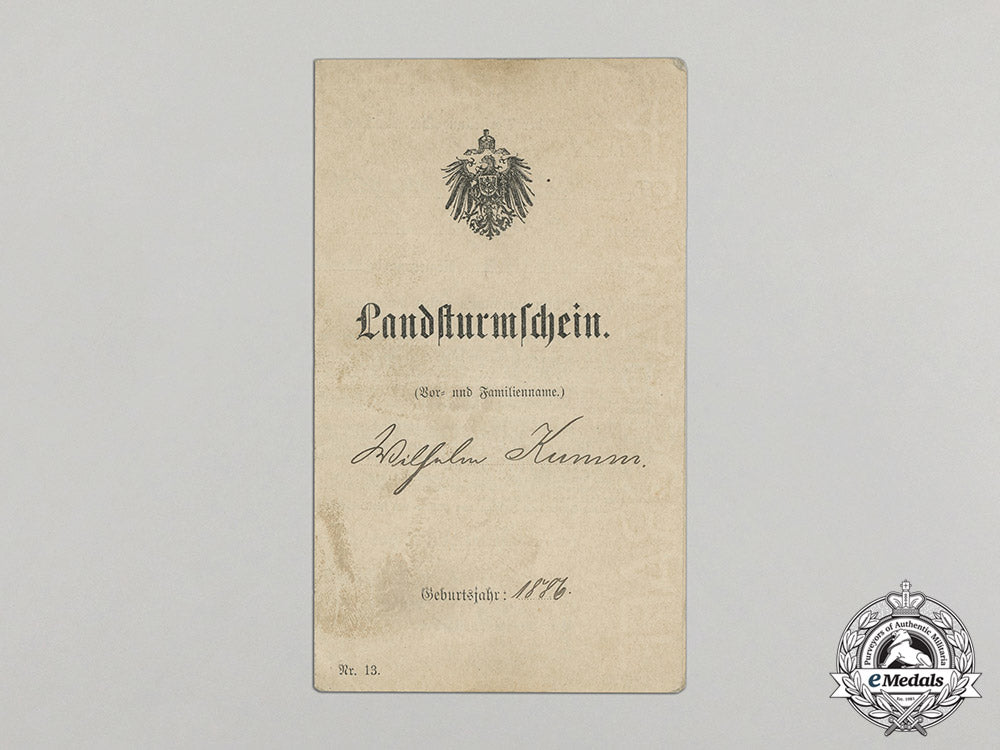 Landsturmschein.
(Vor- und Familienname.)
Wilhelm Kumm.
Geburtsjahr: 1876.
Nr. 13.
Purveyors of Authentic Militaria
eMedals
Est. 1985